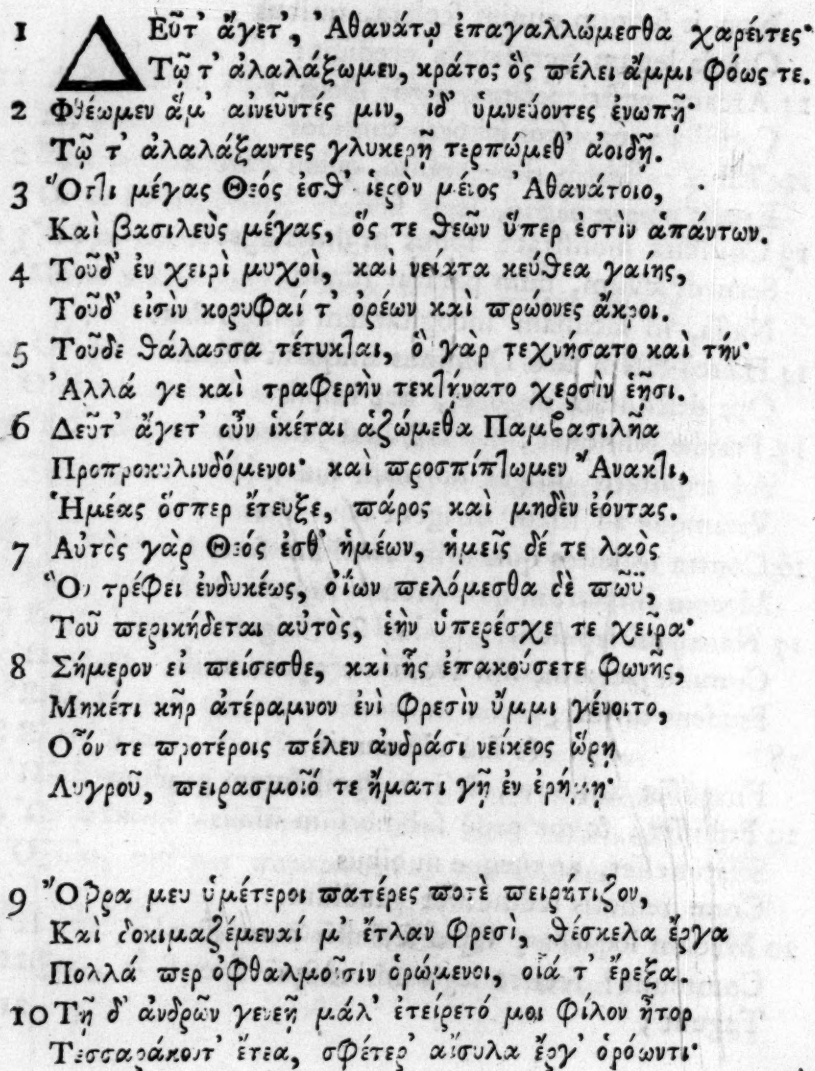 1 ΔΕῦτ' ἄγετ', Ἀθανάτῳ ἐπαγαλλώμεσθα χαρέντες·
Τῷ τ' ἀλαλάξωμεν, κράτος ὃς πέλει ἄμμι φόως τε.
2 Φθέωμεν ἅμ' αἰνεῦντές μιν, ἰδ' ὑμνεύοντες ἐνωπῇ·
Τῷ τ' ἀλαλάξαντες γλυκερῇ τερπώμεθ' ἀοιδῇ.
3 Ὅττι μέγας Θεός ἐσθ' ἱερὸν μένος Ἀθανάτοιο,
Καὶ βασιλεὺς μέγας, ὅς τε θεῶν ὕπερ ἐστὶν ἁπάντων.
4 Τοῦδ' ἐν χειρὶ μυχοὶ, καὶ νείατα κεύθεα γαίης,
Τοῦδ' εἰσὶν κορυφαί τ' ὀρέων καὶ πρώονες ἄκροι.
5 Τοῦδε θάλασσα τέτυκται, ὃ γὰρ τεχνήσατο καὶ τήν·
Ἀλλά γε καὶ τραφερὴν τεκτήνατο χερσὶν ἑῇσι.
6 Δεῦτ' ἄγετ' οὖν ἱκέται ἁζώμεθα Παμβασιλῆα
Προπροκυλινδόμενοι· καὶ προσπίπτωμεν Ἄνακτι,
Ἡμέας ὅσπερ ἔτευξε, πάρος καὶ μηδὲν ἐόντας.
7 Αὐτὸς γὰρ Θεός ἐσθ' ἡμέων, ἡμεῖς δέ τε λαὸς
Ὃν τρέφει ἐνδυκέως, οἴων πελόμεσθα δὲ πῶϋ,
Τοῦ περικήδεται αὐτὸς, ἑὴν ὑπερέσχε τε χεῖρα·
8 Σήμερον εἰ πείσεσθε, καὶ ἧς ἐπακούσετε φωνῆς,
Μηκέτι κῆρ ἀτέραμνον ἐνὶ φρεσὶν ὔμμι γένοιτο,
Οἷόν τε προτέροις πέλεν ἀνδράσι νείκεος ὥρῃ
Λυγροῦ, πειρασμοῖό τε ἤματι γῇ ἐν ἐρήμῃ·
9 Ὄφρα μευ ὑμέτεροι πατέρες ποτὲ πειρήτιζον,
Καὶ δοκιμαζέμεναί μ' ἔτλαν φρεσὶ, θέσκελα ἔργα
Πολλά περ ὀφθαλμοῖσιν ὁρώμενοι, οἷά τ' ἔρεξα.
10 Τῇ δ' ἀνδρῶν γενεῇ μάλ' ἐτείρετό μοι φίλον ἦτορ
Τεσσαράκοντ' ἔτεα, σφέτερ' αἴσυλα ἔργ' ὁρόωντι·